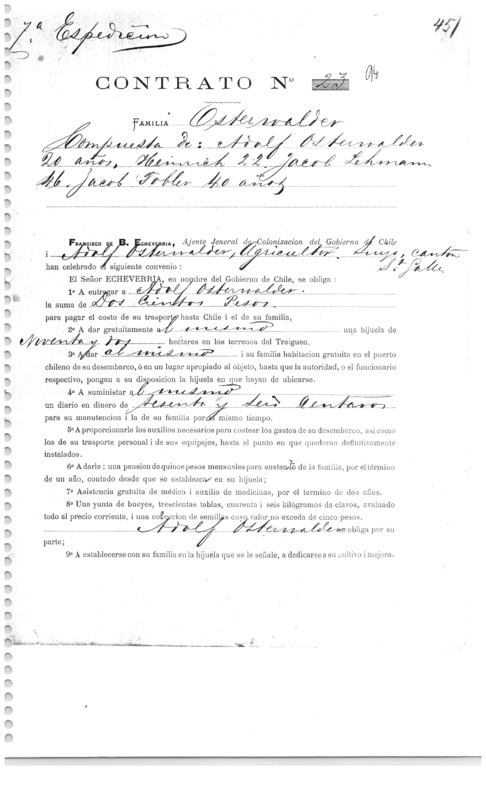 7.ª Espedicion
451
CONTRATO Nº 23 94
FAMILIA Osterwalder
Compuesta de: Adolf Osterwalder
20 años, Heinrich 22. Jacob Lehmann
46. Jacob Tobler 40 años
FRANCISCO DE B. ECHEVERRIA, Ajente Jeneral de Colonizacion del Gobierno de Chile
i Adolf Osterwalder, Agricultor. Suizo, canton
St Galle
han celebrado el siguiente convenio :
El Señor ECHEVERRIA, en nombre del Gobierno de Chile, se obliga :
1º A entregar a Adolf Osterwalder.
la suma de Dos Cientos Pesos.
para pagar el costo de su trasporte hasta Chile i el de su familia,
2º A dar gratuitamente al mismo una hijuela de
Noventa y dos hectares en los terrenos del Traiguen.
3º A dar al mismo i su familia habitacion gratuita en el puerto
chileno de su desembarco, ó en un lugar apropiado al objeto, hasta que la autoridad, o el funcionario
respectivo, pongan a su disposicion la hijuela en que hayan de ubicarse.
4º A suministar al mismo
un diario en dinero de sesenta y seis Centavos
para su manutencion i la de su familia por el mismo tiempo.
5º A proporcionarle los auxilios necesarios para costear los gastos de su desembarco, asi como
los de su trasporte personal i de sus equipajes, hasta el punto en que quedarán definitivamente
instalados.
6º A darle : una pension de quince pesos mensuales para sustento de la familia, por el término
de un año, contado desde que se establezcan en su hijuela ;
7º Asistencia gratuita de médico i auxilio de medicinas, por el termino de dos años.
8º Una yunta de bueyes, trescientas tablas, cuarenta i seis kilógramos de clavos, avaluado
todo al precio corriente, i una coleccion de semillas cuyo valor no exceda de cinco pesos.
Adolf Osterwalder se obliga por su
parte ;
9º A establecerse con su familia en la hijuela que se le señale, a dedicarse a su cultivo i mejora.